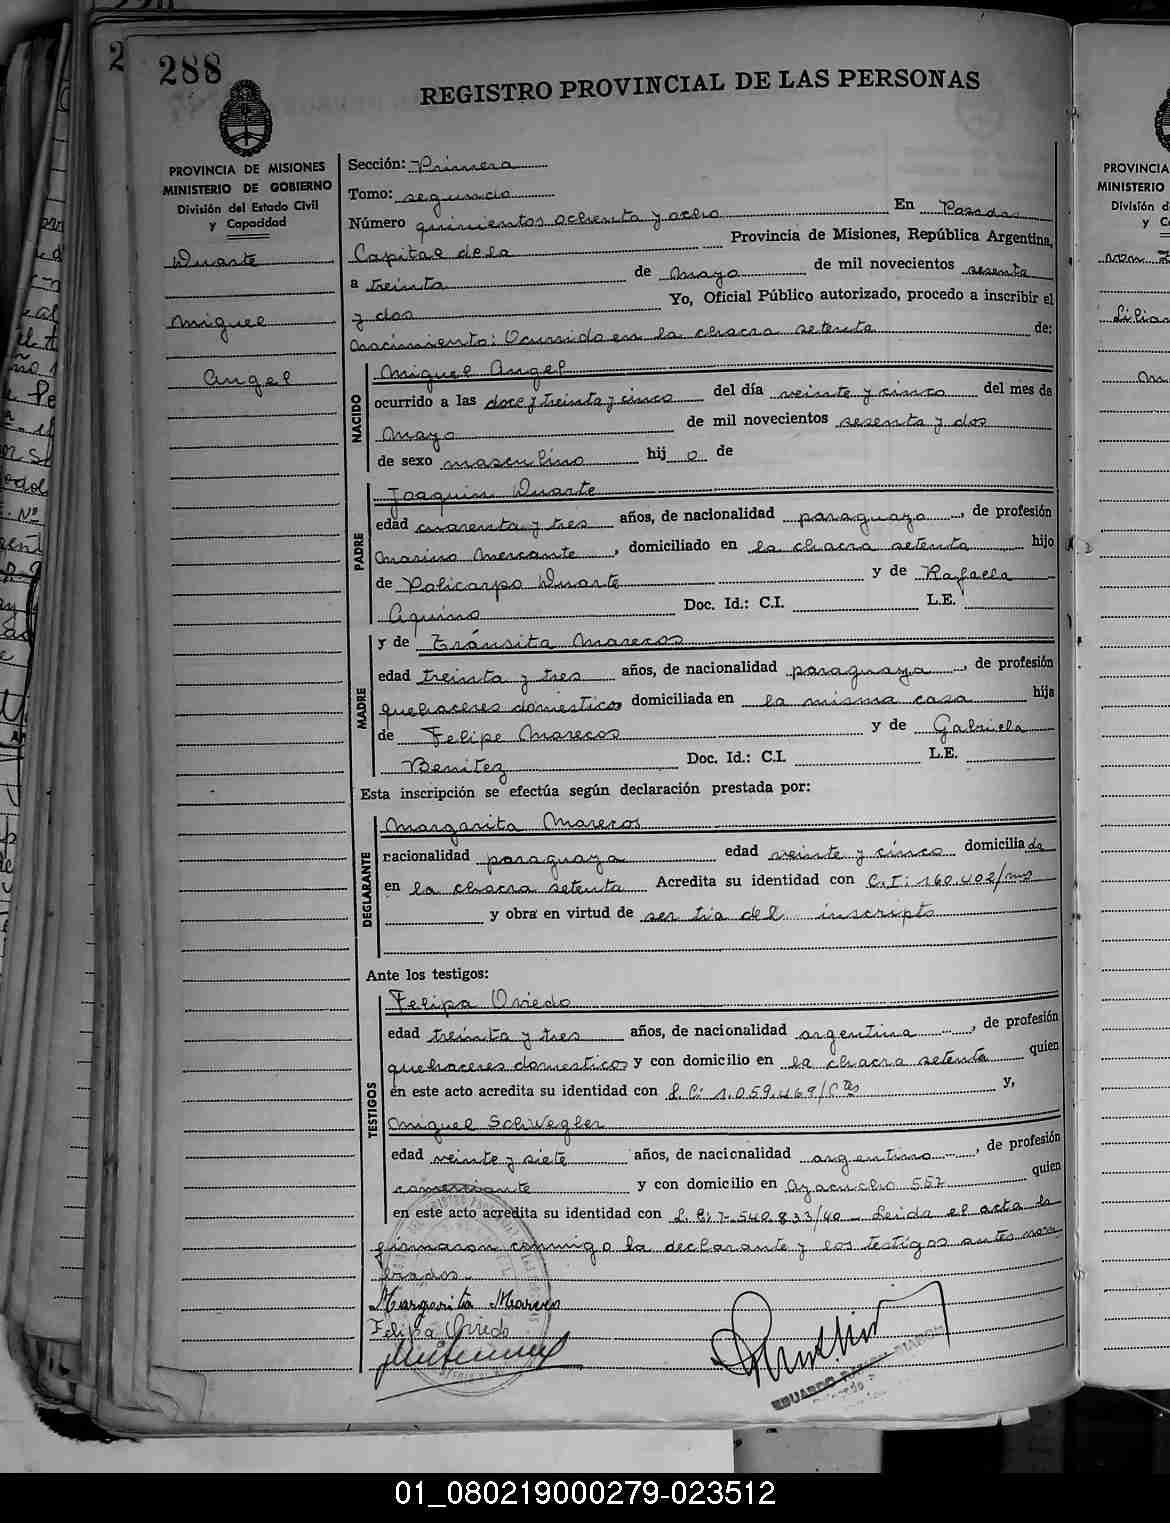 288
REGISTRO PROVINCIAL DE LAS PERSONAS
PROVINCIA DE MISIONES
MINISTERIO DE GOBIERNO
División del Estado Civil
y Capacidad
Duarte
Miguel
Angel
Sección: Primera
Tomo: segundo
Número quinientos ochenta y ocho En Posadas
Capital de la Provincia de Misiones, República Argentina,
a treinta de mayo de mil novecientos sesenta
y dos Yo, Oficial Público autorizado, procedo a inscribir el
nacimiento: Ocurrido en la chacra setenta de:
NACIDO
Miguel Angel
ocurrido a las doce y treinta y cinco del día veinte y cinco del mes de
mayo de mil novecientos sesenta y dos
de sexo masculino hij o de
PADRE
Joaquin Duarte
edad cuarenta y tres años, de nacionalidad paraguayo, de profesión
Marino Mercante, domiciliado en la chacra setenta hijo
de Policarpo Duarte y de Rafaela
Aquino Doc. Id.: C.I. L.E.
MADRE
y de Tránsita Marecos
edad treinta y tres años, de nacionalidad paraguaya, de profesión
quehaceres domestico domiciliada en la misma casa hija
de Felipe Marecos y de Gabriela
Benitez Doc. Id.: C.I. L.E.
Esta inscripción se efectúa según declaración prestada por:
DECLARANTE
Margarita Marecos
nacionalidad paraguaya edad veinte y cinco domicilia da
en la chacra setenta Acredita su identidad con C.I: 160.402/ms
y obra en virtud de ser tia del inscripto
Ante los testigos:
TESTIGOS
Felipa Oviedo
edad treinta y tres años, de nacionalidad argentina, de profesión
quehaceres domesticos y con domicilio en la chacra setenta quien
en este acto acredita su identidad con L.C: 1.059.469/Ctes y,
Miguel Schwegler
edad veinte y siete años, de nacionalidad argentino, de profesión
comerciante y con domicilio en Ayacucho 557 quien
en este acto acredita su identidad con L.E: 7.540.833/40 - Leida el acta la
firmaron conmigo la declarante y los testigos antes nom
brados.
Margarita Marecos
Felipa Oviedo
EDUARDO
PROVINCIA
MINISTERIO
División d
y C
01_080219000279-023512